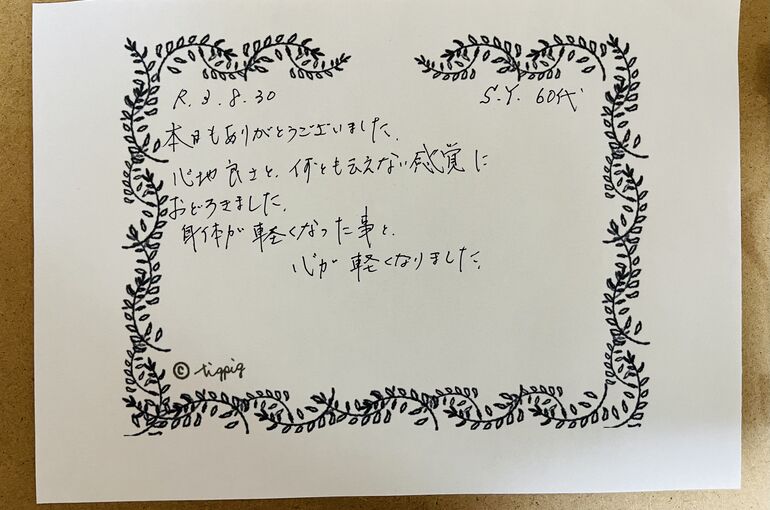 R.3.8.30
S.Y. 60代
本日もありがとうございました。
心地良さと、何とも云えない感覚に
おどろきました。
身体が軽くなった事と、
心が軽くなりました。
© tigpig